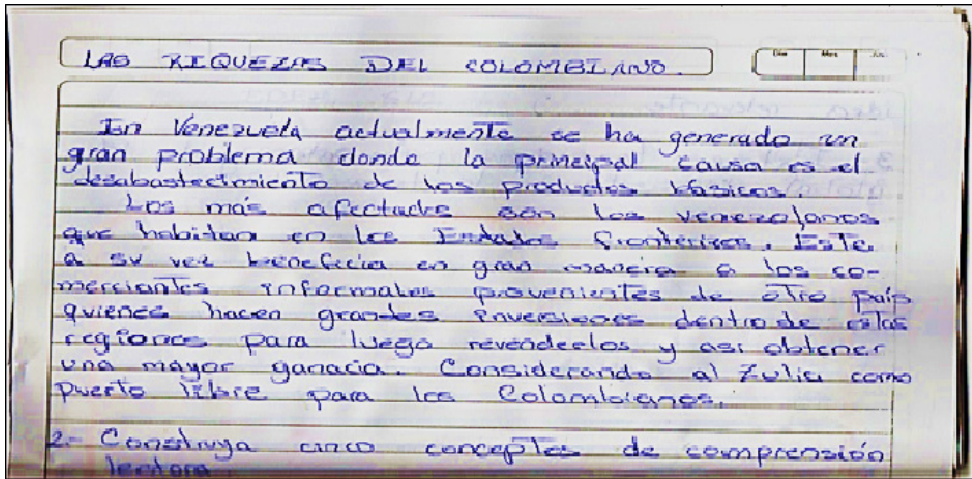 LAS RIQUEZAS DEL COLOMBIANO.
Dia Mes Año
En Venezuela actualmente se ha generado un
gran problema donde la principal causa es el
desabastecimiento de los productos básicos.
Los más afectados son los venezolanos
que habitan en los Estados fronterizos. Este
a su vez beneficia en gran manera a los co-
merciantes informales provenientes de otro país
quienes hacen grandes inversiones dentro de estas
regiones para luego revenderlos y asi obtener
una mayor ganacia. Considerando al Zulia como
puerto libre para los Colombianos.
2.- Construya cinco conceptos de comprensión
lectora